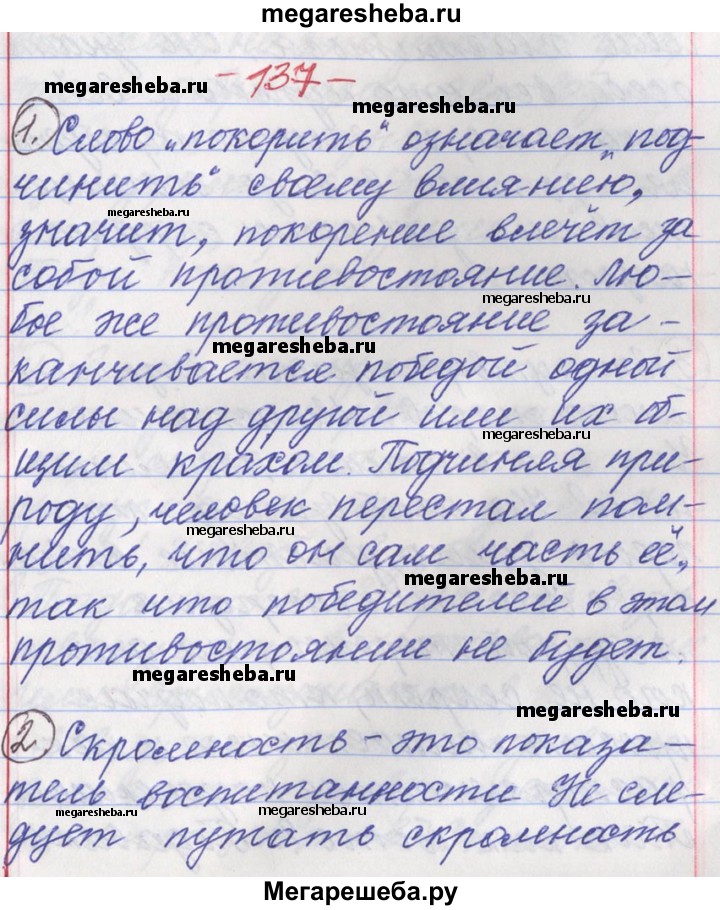 megaresheba.ru
- 137 -
megaresheba.ru
megaresheba.ru
1. Слово „покорить" означает „под-
чинить" своему влиянию,
megaresheba.ru
значит, покорение влечёт за
собой противостояние. Лю-
megaresheba.ru
бое же противостояние за-
megaresheba.ru
канчивается победой одной
силы над другой или их об-
megaresheba.ru
щим крахом. Подчиняя при-
роду, человек перестал пом-
megaresheba.ru
нить, что он сам часть её,
megaresheba.ru
так что победителей в этом
противостоянии не будет.
megaresheba.ru
megaresheba.ru
2. Скромность - это показа-
тель воспитанности. Не сле-
megaresheba.ru
megaresheba.ru
дует путать скромность
Мегарешеба.ру